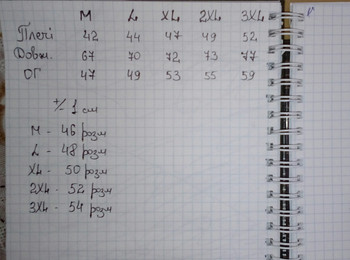 M L XL 2XL 3XL
Плечі 42 44 47 49 52
Довж. 67 70 72 73 77
ОГ 47 49 53 55 59
+/- 1 см
M - 46 розм
L - 48 розм
XL - 50 розм
2XL - 52 розм
3XL - 54 розм